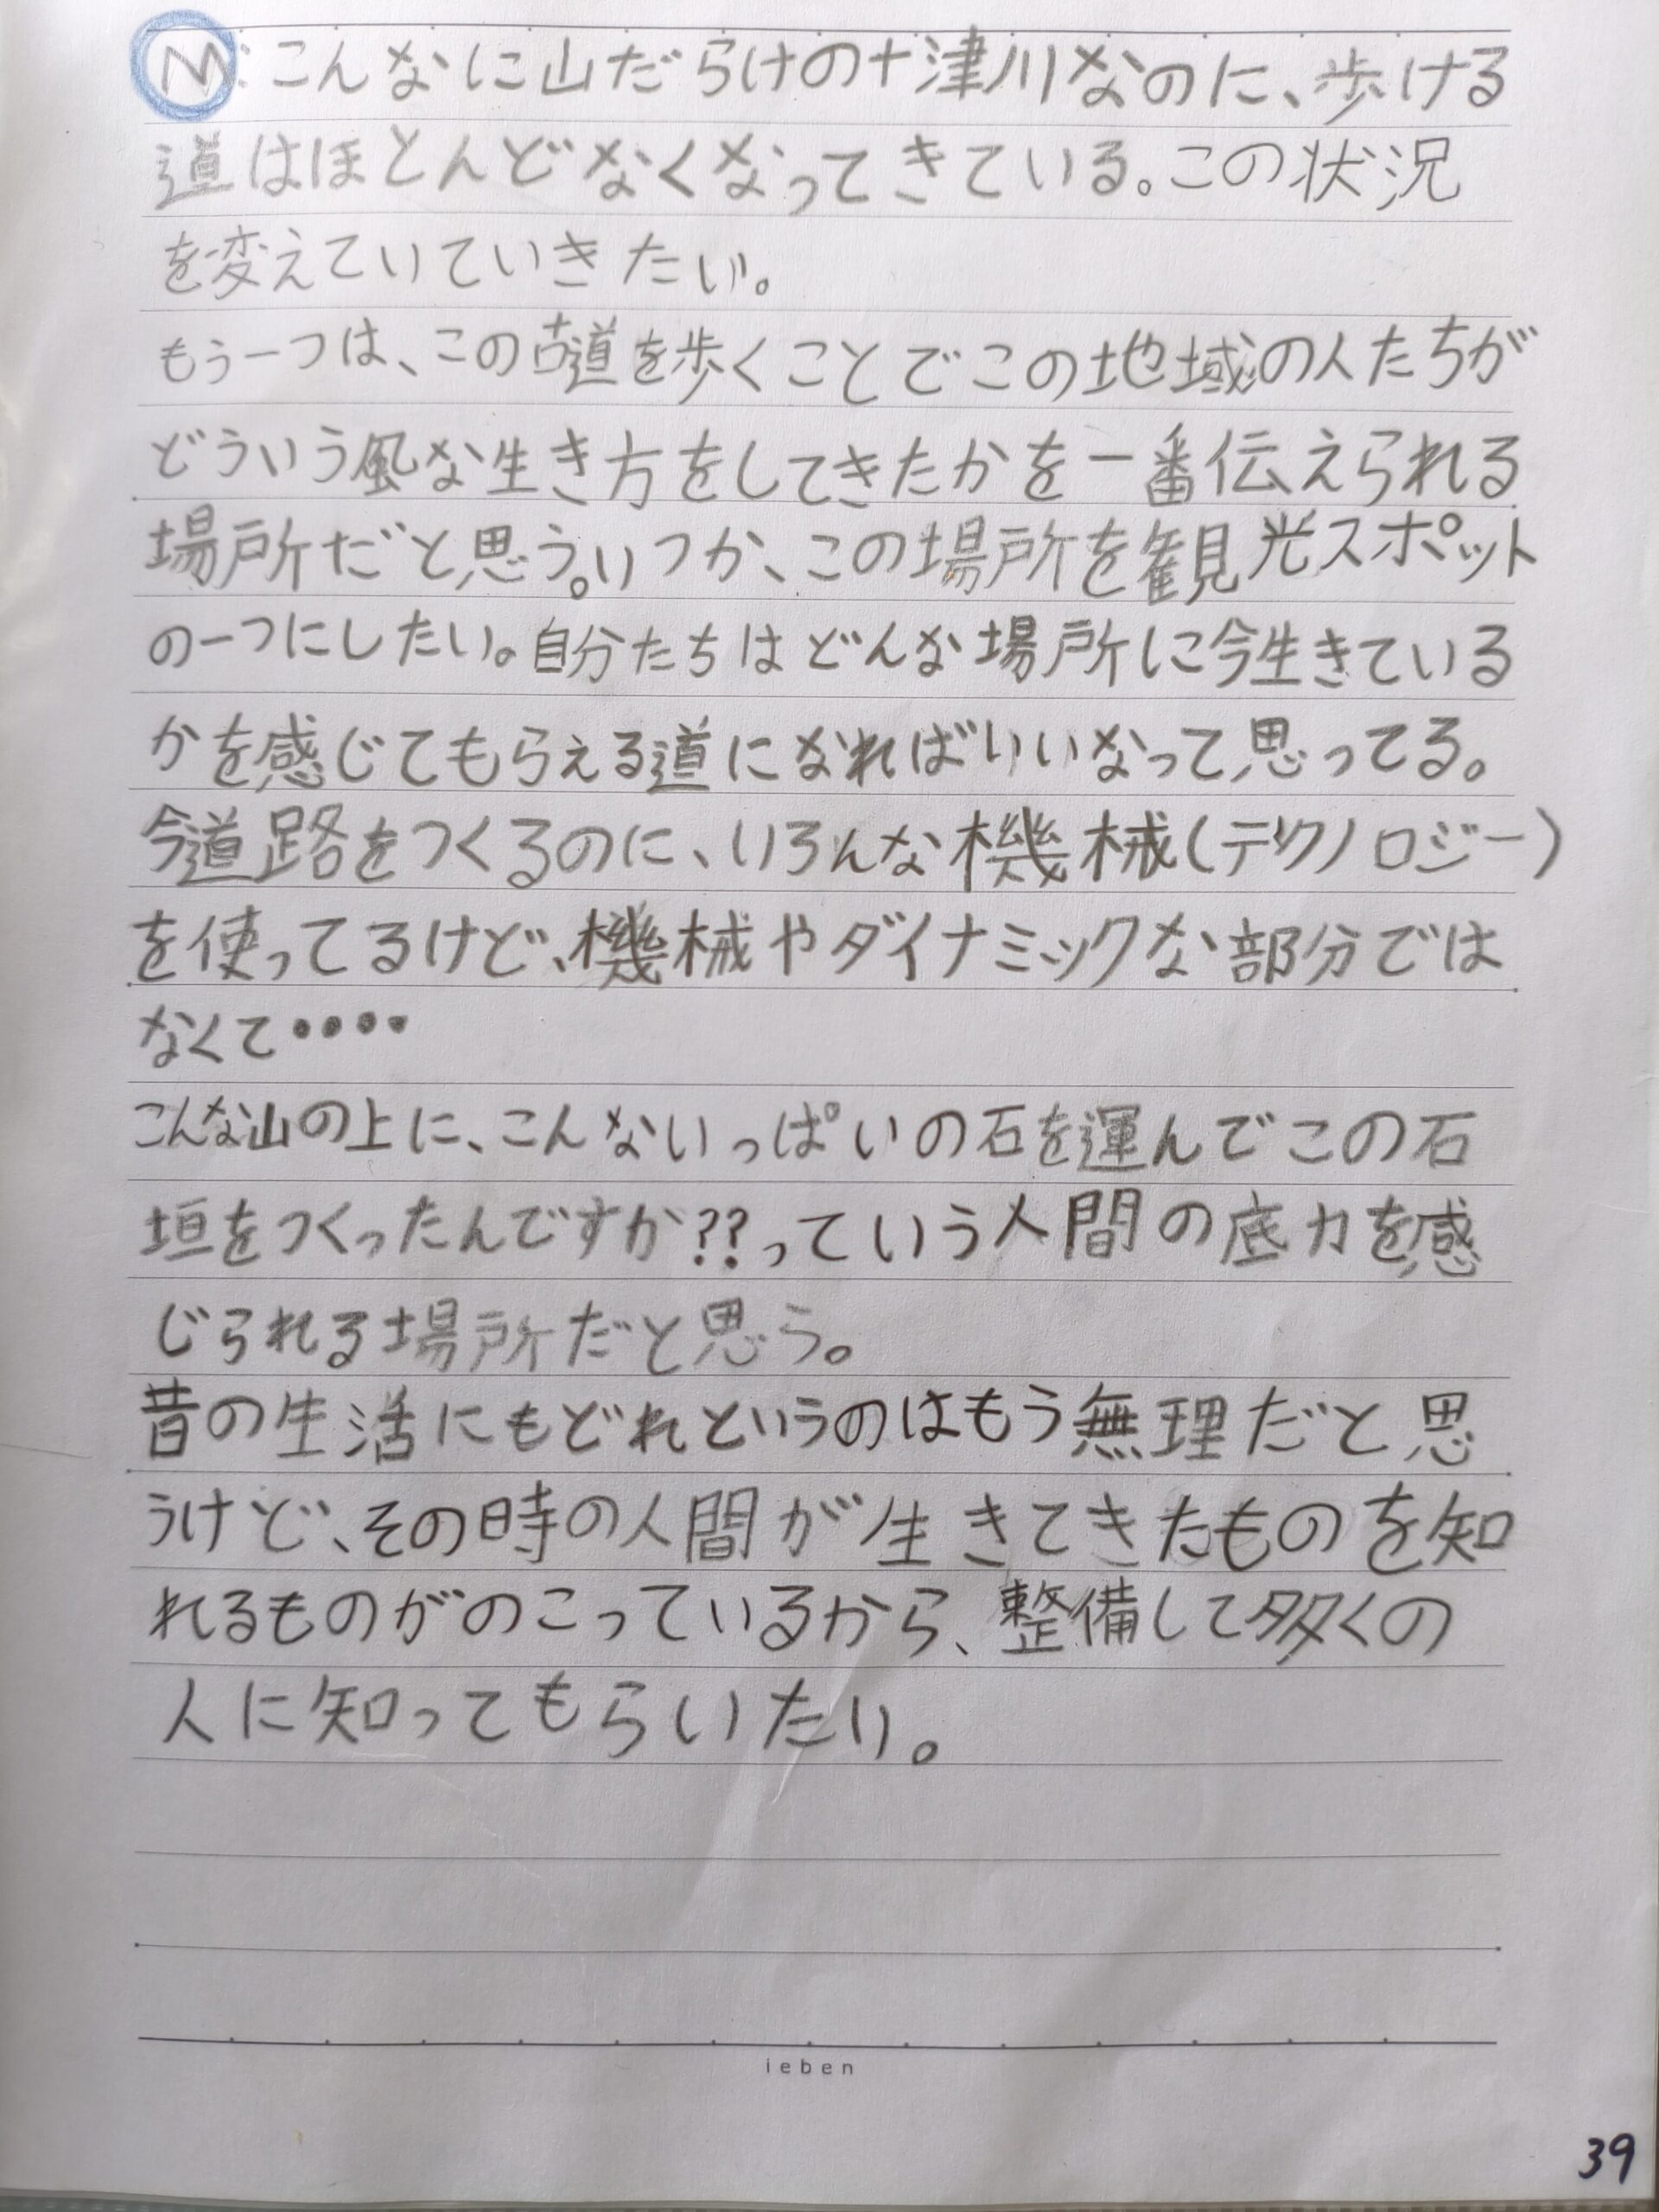 M:こんなに山だらけの十津川なのに、歩ける
道はほとんどなくなってきている。この状況
を変えていていきたい。
もう一つは、この古道を歩くことでこの地域の人たちが
どういう風な生き方をしてきたかを一番伝えられる
場所だと思う。いつか、この場所を観光スポット
の一つにしたい。自分たちはどんな場所に今生きている
かを感じてもらえる道になればいいなって思ってる。
今道路をつくるのに、いろんな機械(テクノロジー)
を使ってるけど、機械やダイナミックな部分では
なくて••••
こんな山の上に、こんないっぱいの石を運んでこの石
垣をつくったんですか??っていう人間の底力を感
じられる場所だと思う。
昔の生活にもどれというのはもう無理だと思
うけど、その時の人間が生きてきたものを知
れるものがのこっているから、整備して多くの
人に知ってもらいたい。
ieben
39